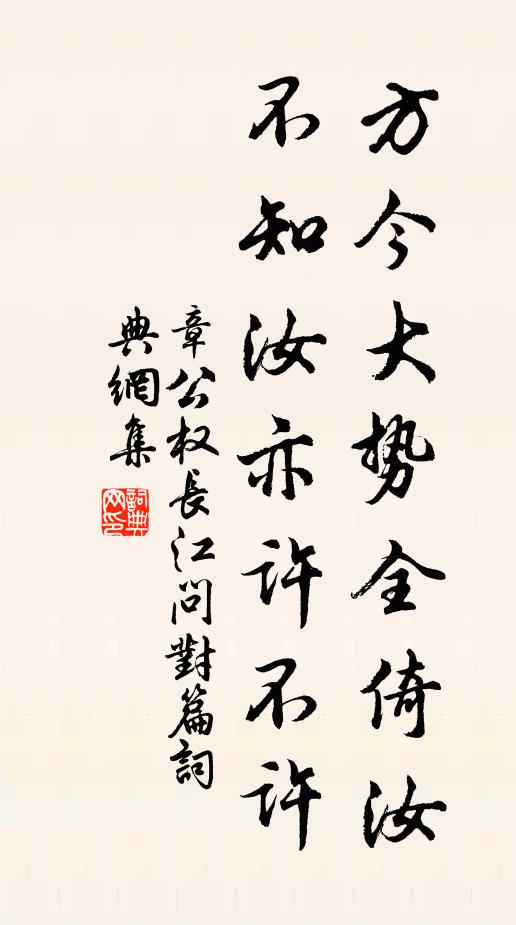 方今大势全倚汝
不知汝亦许不许
章公权長江問對篇詞
典網集
詞典
网印